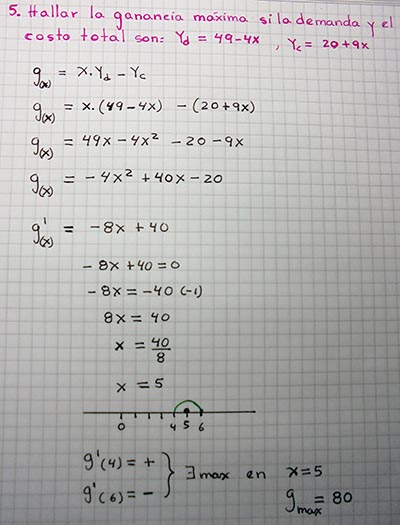 5. Hallar la ganancia máxima si la demanda y el
costo total son: Yd = 49-4x , Yc = 20+9x
g(x) = x.Yd - Yc
g(x) = x.(49-4x) - (20+9x)
g(x) = 49x-4x² -20-9x
g(x) = -4x²+40x-20
g'(x) = -8x+40
-8x+40=0
-8x=-40 (-1)
8x = 40
x = 40/8
x = 5
0 4 5 6
g'(4) = +
g'(6) = -
} ∃ max en x=5
gmax = 80